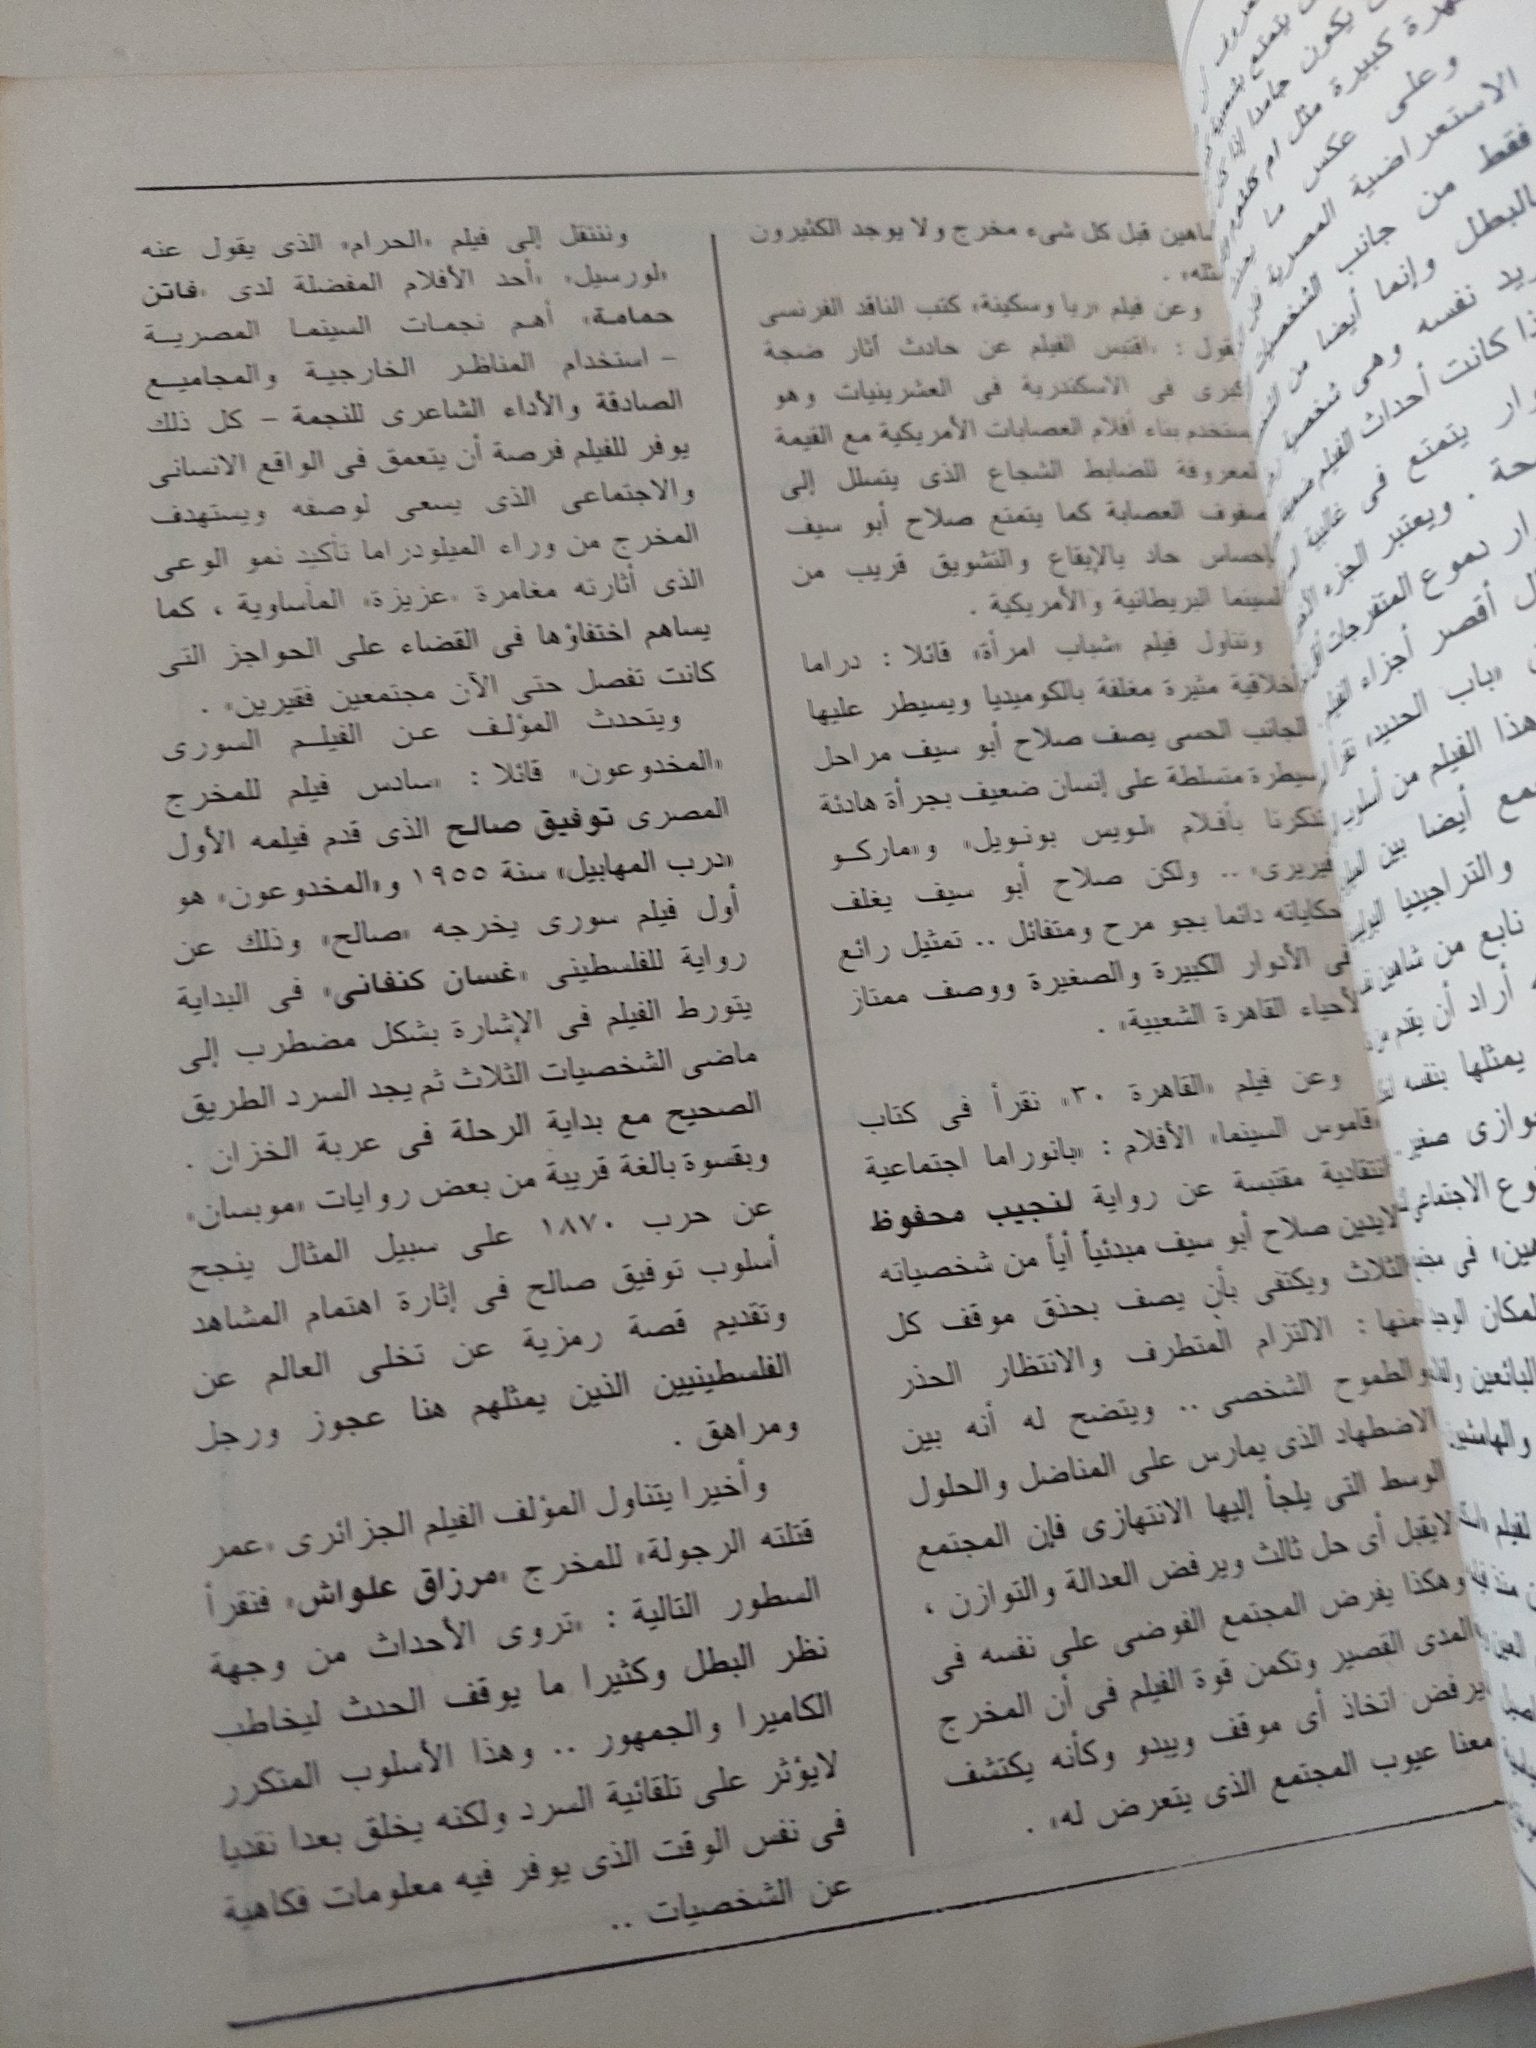 شاهين قبل كل شىء مخرج ولا يوجد الكثيرون
مثله» .
وعن فيلم «ريا وسكينة» كتب الناقد الفرنسى
يقول : «اقتبس الفيلم عن حادث أثار ضجة
كبرى فى الاسكندرية فى العشرينيات وهو
يستخدم بناء أفلام العصابات الأمريكية مع القيمة
المعروفة للضابط الشجاع الذى يتسلل إلى
صفوف العصابة كما يتمتع صلاح أبو سيف
بإحساس حاد بالإيقاع والتشويق قريب من
السينما البريطانية والأمريكية .
وتناول فيلم «شباب امرأة» قائلا : دراما
أخلاقية مثيرة مغلفة بالكوميديا ويسيطر عليها
الجانب الحسى يصف صلاح أبو سيف مراحل
سيطرة متسلطة على إنسان ضعيف بجرأة هادئة
تذكرنا بأفلام «لويس بونويل» و«ماركو
فيريرى» .. ولكن صلاح أبو سيف يغلف
حكاياته دائما بجو مرح ومتفائل .. تمثيل رائع
فى الأدوار الكبيرة والصغيرة ووصف ممتاز
لأحياء القاهرة الشعبية» .
وعن فيلم «القاهرة ٣٠» نقرأ فى كتاب
«قاموس السينما» الأفلام : «بانوراما اجتماعية
انتقادية مقتبسة عن رواية لنجيب محفوظ
لايدين صلاح أبو سيف مبدئيأ أيأ من شخصياته
الثلاث ويكتفى بأن يصف بحذق موقف كل
منها : الالتزام المتطرف والانتظار الحذر
والطموح الشخصى .. ويتضح له أنه بين
الاضطهاد الذى يمارس على المناضل والحلول
الوسط التى يلجأ إليها الانتهازى فإن المجتمع
لايقبل أى حل ثالث ويرفض العدالة والتوازن ،
وهكذا يفرض المجتمع الفوضى على نفسه فى
المدى القصير وتكمن قوة الفيلم فى أن المخرج
يرفض اتخاذ أى موقف ويبدو وكأنه يكتشف
معنا عيوب المجتمع الذى يتعرض له» .
وننتقل إلى فيلم «الحرام» الذى يقول عنه
«لورسيل» «أحد الأفلام المفضلة لدى «فاتن
حمامة» أهم نجمات السينما المصرية
- استخدام المناظر الخارجية والمجاميع
الصادقة والأداء الشاعرى للنجمة - كل ذلك
يوفر للفيلم فرصة أن يتعمق فى الواقع الانسانى
والاجتماعى الذى يسعى لوصفه ويستهدف
المخرج من وراء الميلودراما تأكيد نمو الوعى
الذى أثارته مغامرة «عزيزة» المأساوية ، كما
يساهم اختفاؤها فى القضاء على الحواجز التى
كانت تفصل حتى الآن مجتمعين فقيرين» .
ويتحدث المؤلف عن الفيلم السورى
«المخدوعون» قائلا : «سادس فيلم للمخرج
المصرى توفيق صالح الذى قدم فيلمه الأول
«درب المهابيل» سنة ١٩٥٥ و«المخدوعون» هو
أول فيلم سورى يخرجه «صالح» وذلك عن
رواية للفلسطينى «غسان كنفانى» فى البداية
يتورط الفيلم فى الإشارة بشكل مضطرب إلى
ماضى الشخصيات الثلاث ثم يجد السرد الطريق
الصحيح مع بداية الرحلة فى عربة الخزان .
وبقسوة بالغة قريبة من بعض روايات «موبسان»
عن حرب ١٨٧٠ على سبيل المثال ينجح
أسلوب توفيق صالح فى إثارة اهتمام المشاهد
وتقديم قصة رمزية عن تخلى العالم عن
الفلسطينيين الذين يمثلهم هنا عجوز ورجل
ومراهق .
وأخيرا يتناول المؤلف الفيلم الجزائرى «عمر
قتلته الرجولة» للمخرج «مرزاق علواش» فنقرأ
السطور التالية : «تروى الأحداث من وجهة
نظر البطل وكثيرا ما يوقف الحدث ليخاطب
الكاميرا والجمهور .. وهذا الأسلوب المتكرر
لايؤثر على تلقائية السرد ولكنه يخلق بعدا نقديا
فى نفس الوقت الذى يوفر فيه معلومات فكاهية
عن الشخصيات ..
يكون جامدا إذا
كبيرة مثل أم كلثوم
وعلى عكس ما
الاستعراضية المصرية
فقط من جانب الشخصيات
بالبطل وإنما أيضا من
نفسه وهى شخصية
كانت أحداث الفيلم
يتمتع فى غالبية
ويعتبر الجزء
دموع المتفرجات
أقصر أجزاء
«باب الحديد»
هذا الفيلم من
أيضا بين
والتراجيديا
نابع من شاهين
أراد أن يقدم
يمثلها بنفسه